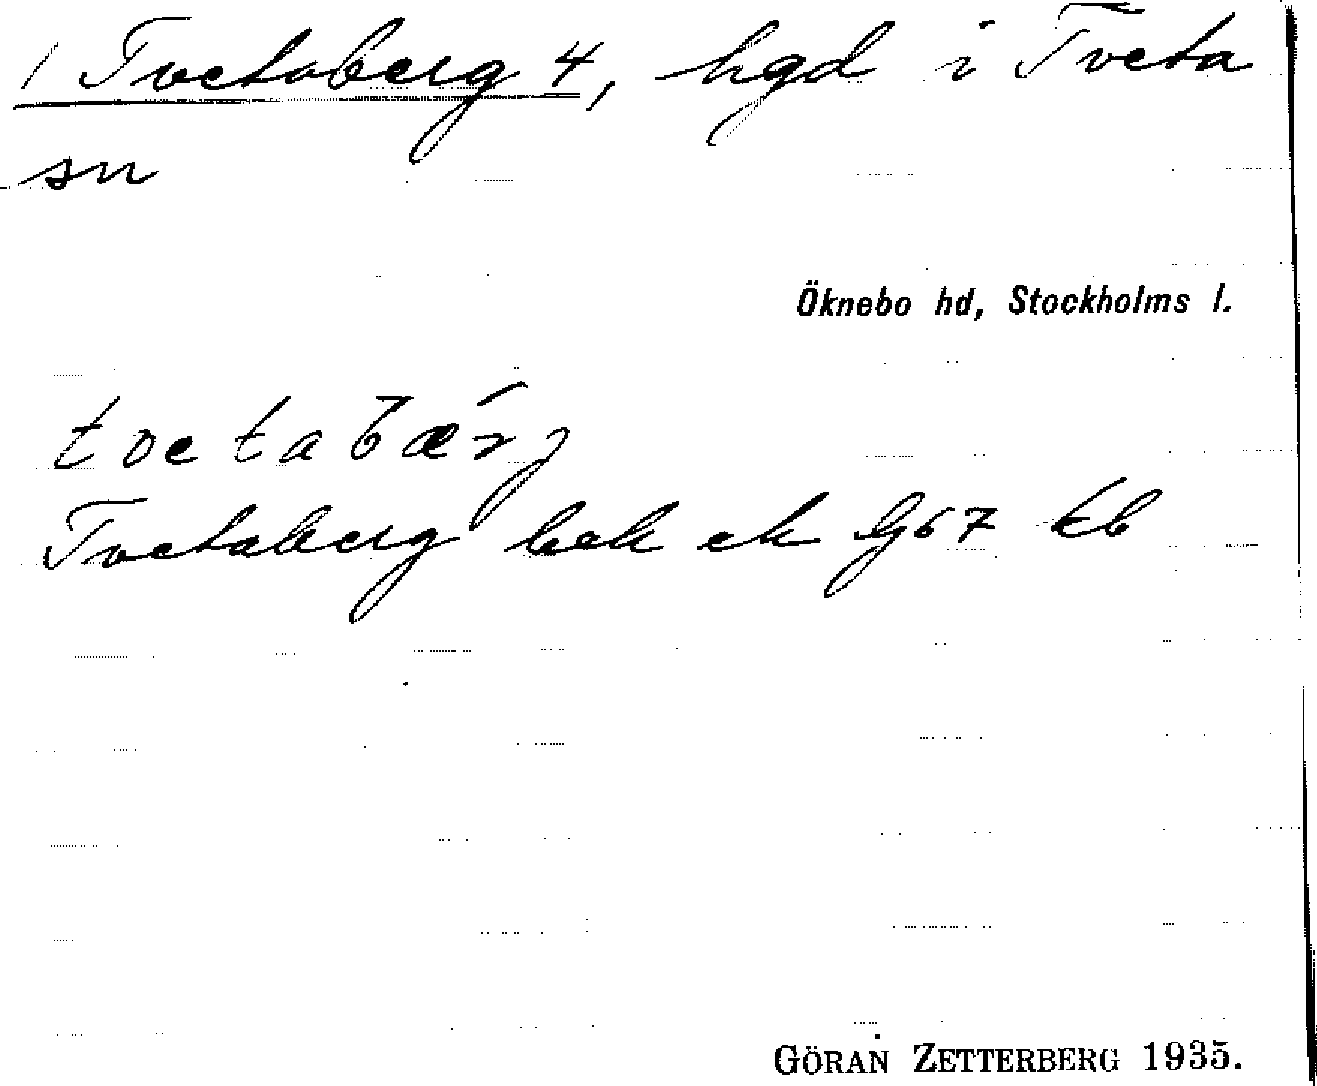 / Tvetaberg 4, hgd i Tveta
sn
Öknebo hd, Stockholms l.
tvetabærj
Tvetaberg bek ek G67 kb
GÖRAN ZETTERBERG 1935.